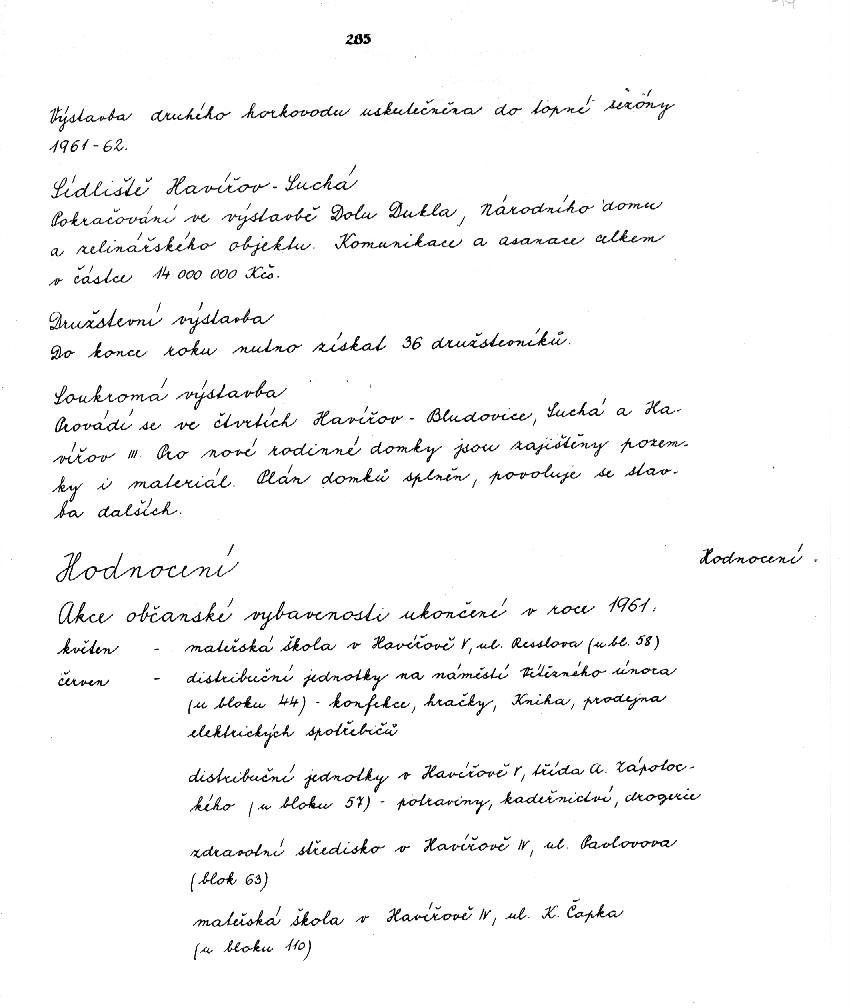 285
Výstavba druhého horkovodu uskutečněna do topné sezóny
1961-62.
Sídliště Havířov - Suchá
Pokračování ve výstavbě Dolu Dukla, Národního domu
a zelinářského objektu. Komunikace a asanace celkem
v částce 14 000 000 Kčs.
Družstevní výstavba
Do konce roku nutno získat 36 družstevníků.
Soukromá výstavba
Provádí se ve čtvrtích Havířov - Bludovice, Suchá a Ha-
vířov III. Pro nové rodinné domky jsou zajištěny pozem-
ky i materiál. Plán domků splněn, povoluje se stav-
ba dalších.
Hodnocení
Hodnocení.
Akce občanské vybavenosti ukončené v roce 1961:
květen - mateřská škola v Havířově V, ul. Resslova (u bl. 58)
červen - distribuční jednotky na náměstí Vítězného února
(u bloku 44) - konfekce, hračky, Kniha, prodejna
elektrických spotřebičů
distribuční jednotky v Havířově V, třída A. Zápotoc-
kého (u bloku 57) - potraviny, kadeřnictví, drogerie
zdravotní středisko v Havířově IV, ul. Pavlovova
(blok 63)
mateřská škola v Havířově IV, ul. K. Čapka
(u bloku 110)